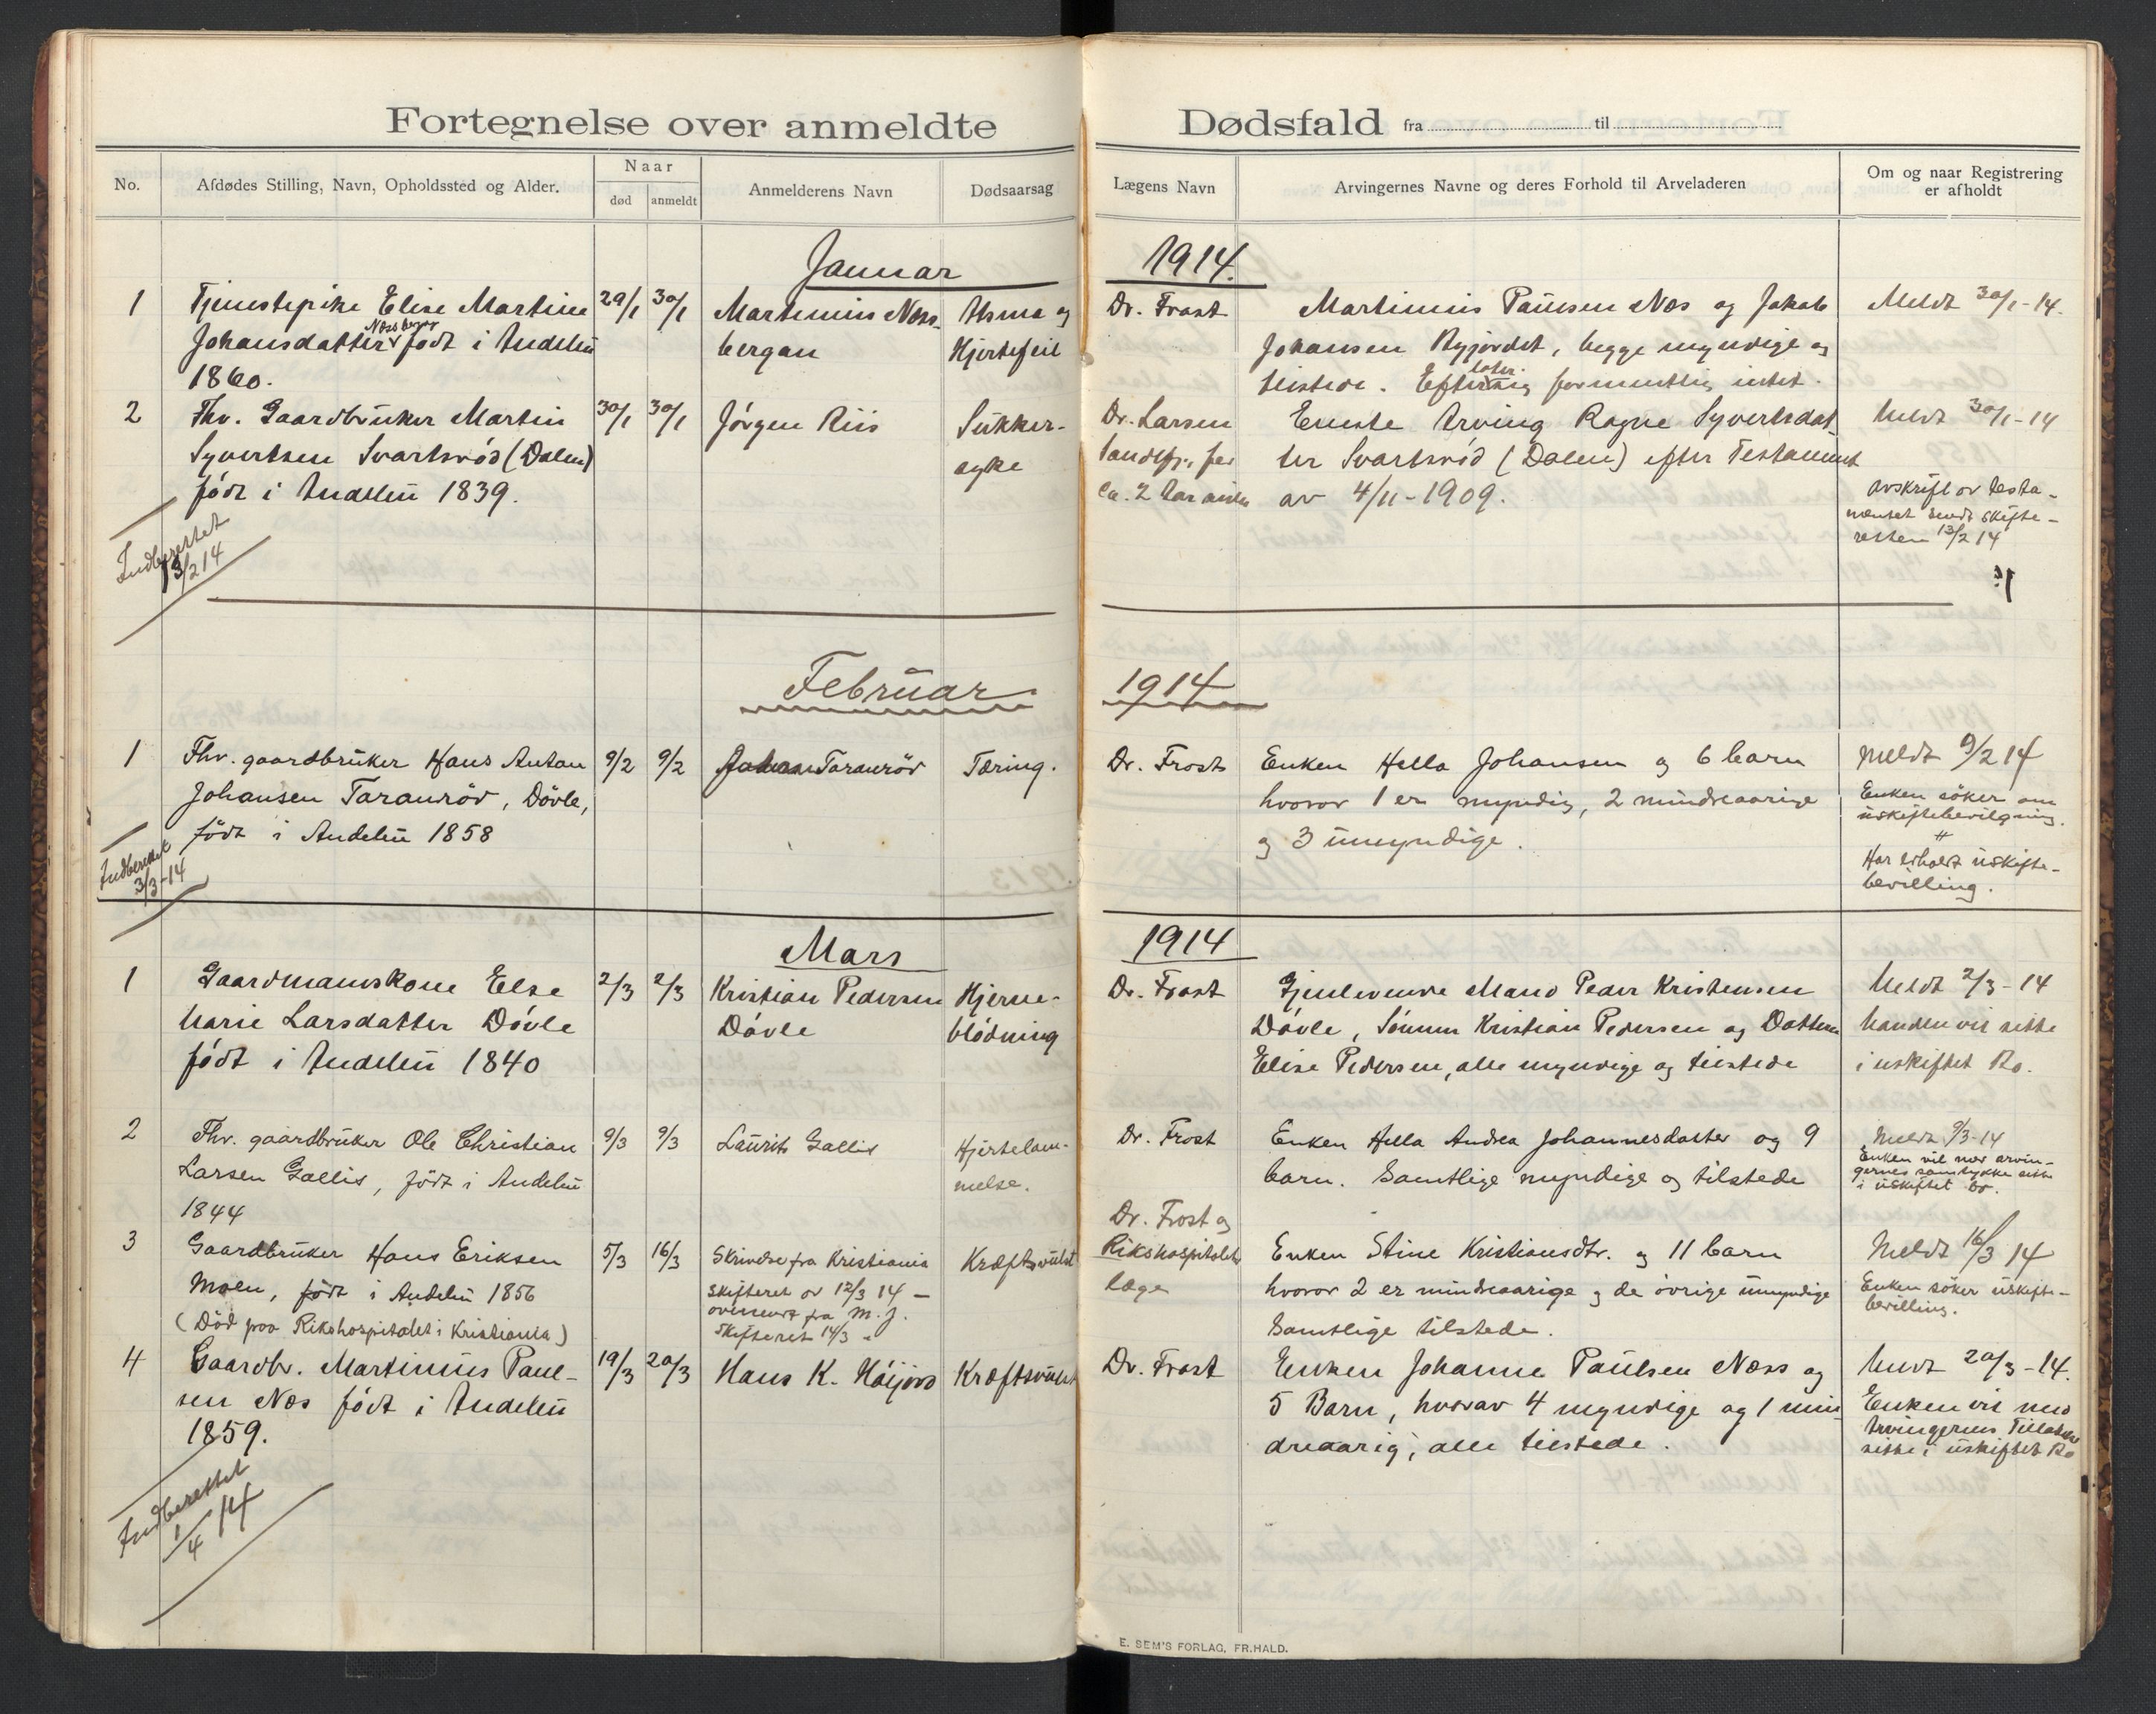 Fortegnelse over anmeldte
No.
Afdødes Stilling, Navn, Opholdssted og Alder.
Naar
død
anmeldt
Anmelderens Navn
Dødsaarsag
Januar
1 Tjenstepike Elise Martine 29/1 30/1 Martinius Næss- Asma og
Johansdatter Næssbergan født i Andebu bergan Hjertefeil
1860.
2 Fhv. Gaardbruker Martin 30/1 30/1 Jörgen Riis Sukker-
Syvertsen Svartsröd (Dalen) syke
född i Andebu 1839.
Indberettet
13/2 14
Februar
1 Fhv. gaardbruker Hans Anton 9/2 9/2 Johan Taranröd Tæring.
Johansen Taranröd, Dövle,
født i Andebu 1858
Indberettet
3/3-14
Mars
1 Gaardmannskone Else 2/3 2/3 Kristian Pedersen Hjerne-
Marie Larsdatter Dövle Dövle blödning
född i Andebu 1840
2 Fhv. gaardbruker Ole Christian 9/3 9/3 Laurits Gallis Hjertelam-
Larsen Gallis, född i Andebu melse.
1844
3 Gaardbruker Hans Eriksen 5/3 16/3 Skrivelse fra Kristiania Kræftsvulst
Moen, född i Andebu 1856 skifteret av 12/3 14 -
(Död paa Rikshospitalet i Kristiania) oversendt fra M. J.
Skifteret 14/3
4 Gaardbr. Martinius Paul- 19/3 20/3 Hans K. Höijord Kræftsvulst
sen Næs född i Andebu
1859.
Indberettet
1/4 14
Dødsfald fra til
Lægens Navn
Arvingernes Navne og deres Forhold til Arveladeren
Om og naar Registrering
er afholdt
1914.
Dr. Frost Martinius Paulsen Næs og Jakob Meldt 30/1-14.
Johansen Nyjordet, begge myndige og
tilstede. Efterlater sig formentlig intet.
Dr. Larsen Eneste Arving Ragne Syvertsdat- Meldt 30/1-14
Sandefj. for ter Svartsröd (Dalen) efter Testament
ca. 2 aar siden av 4/11-1909.
avskrift av testa-
mentet sendt skifte-
retten 13/2 14
1914
Dr. Frost Enken Hella Johansen og 6 barn Meldt 9/2 14
hvorav 1 er myndig, 2 mindreaarige Enken söker om
og 3 umyndige. uskiftebevilgning.
Har erholdt uskifte-
bevilling.
1914
Dr. Frost Gjenlevende Mand Peder Kristensen Meldt 2/3-14
Dövle, Sönnen Kristian Pedersen og Datteren Manden vil sitte
Elise Pedersen, alle myndige og tilstede i uskiftet Bo.
Dr. Frost Enken Hella Andrea Johannesdatter og 9 Meldt 9/3-14
barn. Samtlige myndige og tilstede Enken vil med arvin-
gernes samtykke sitte
i uskiftet bo.
Dr. Frost og
Rikshospitalets Enken Stine Kristiansdtr. og 11 barn Meldt 16/3 14
læge hvorav 2 er mindreaarige og de övrige umyndige Enken söker uskifte-
bevilling.
Samtlige tilstede.
Dr. Frost Enken Johanne Paulsen Næss og Meldt 20/3-14.
5 Barn, hvorav 4 myndige og 1 min- Enken vil med
dreaarig, alle tilstede. Arvingernes Tilladelse
sitte i uskiftet Bo
E. SEM'S FORLAG, FR.HALD.